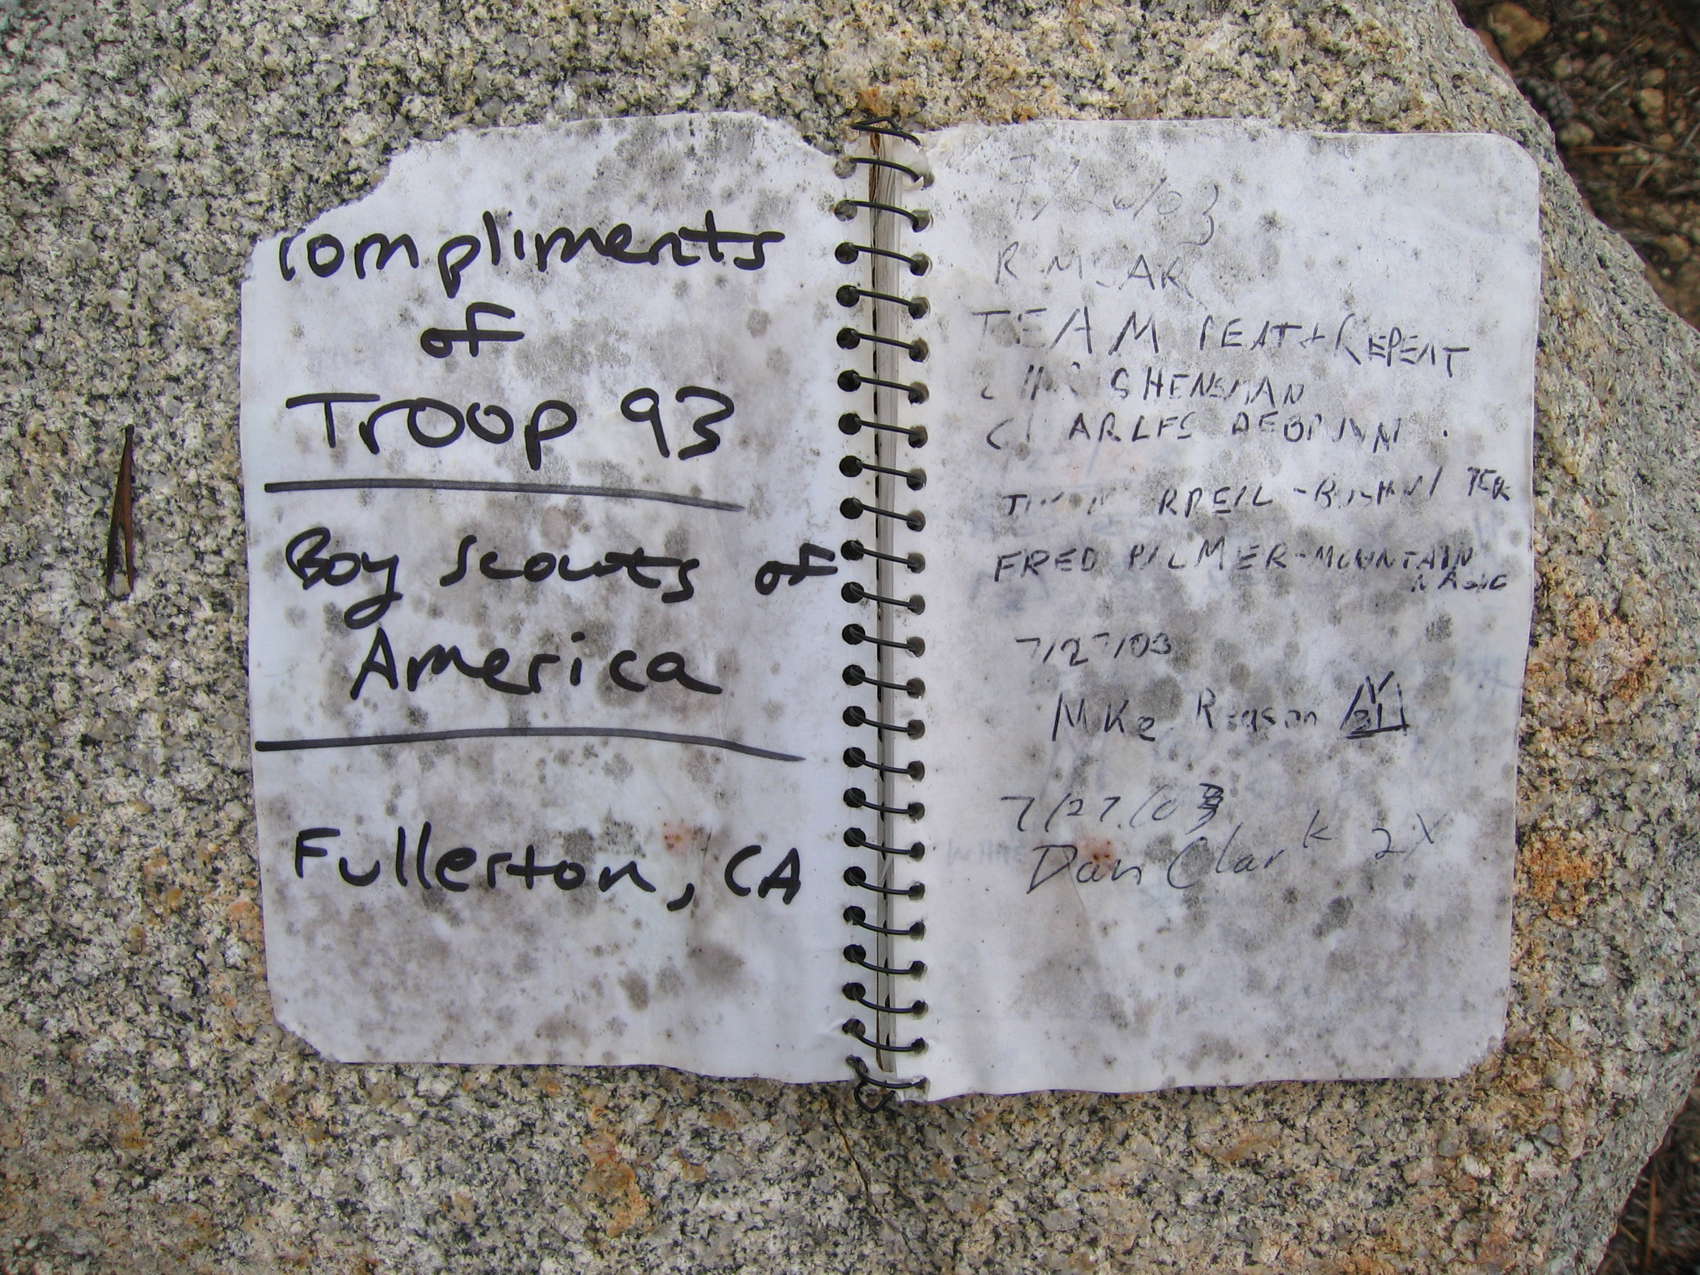 compliments
of
Troop 93
Boy Scouts of
America
Fullerton, CA
7/26/03
TEAM PEAT & REPEAT
SHENSMAN
CHARLES
FRED PALMER-MOUNTAIN
MAGIC
7/27/03
Mike Reason
7/27/03
Dan Clark 2X